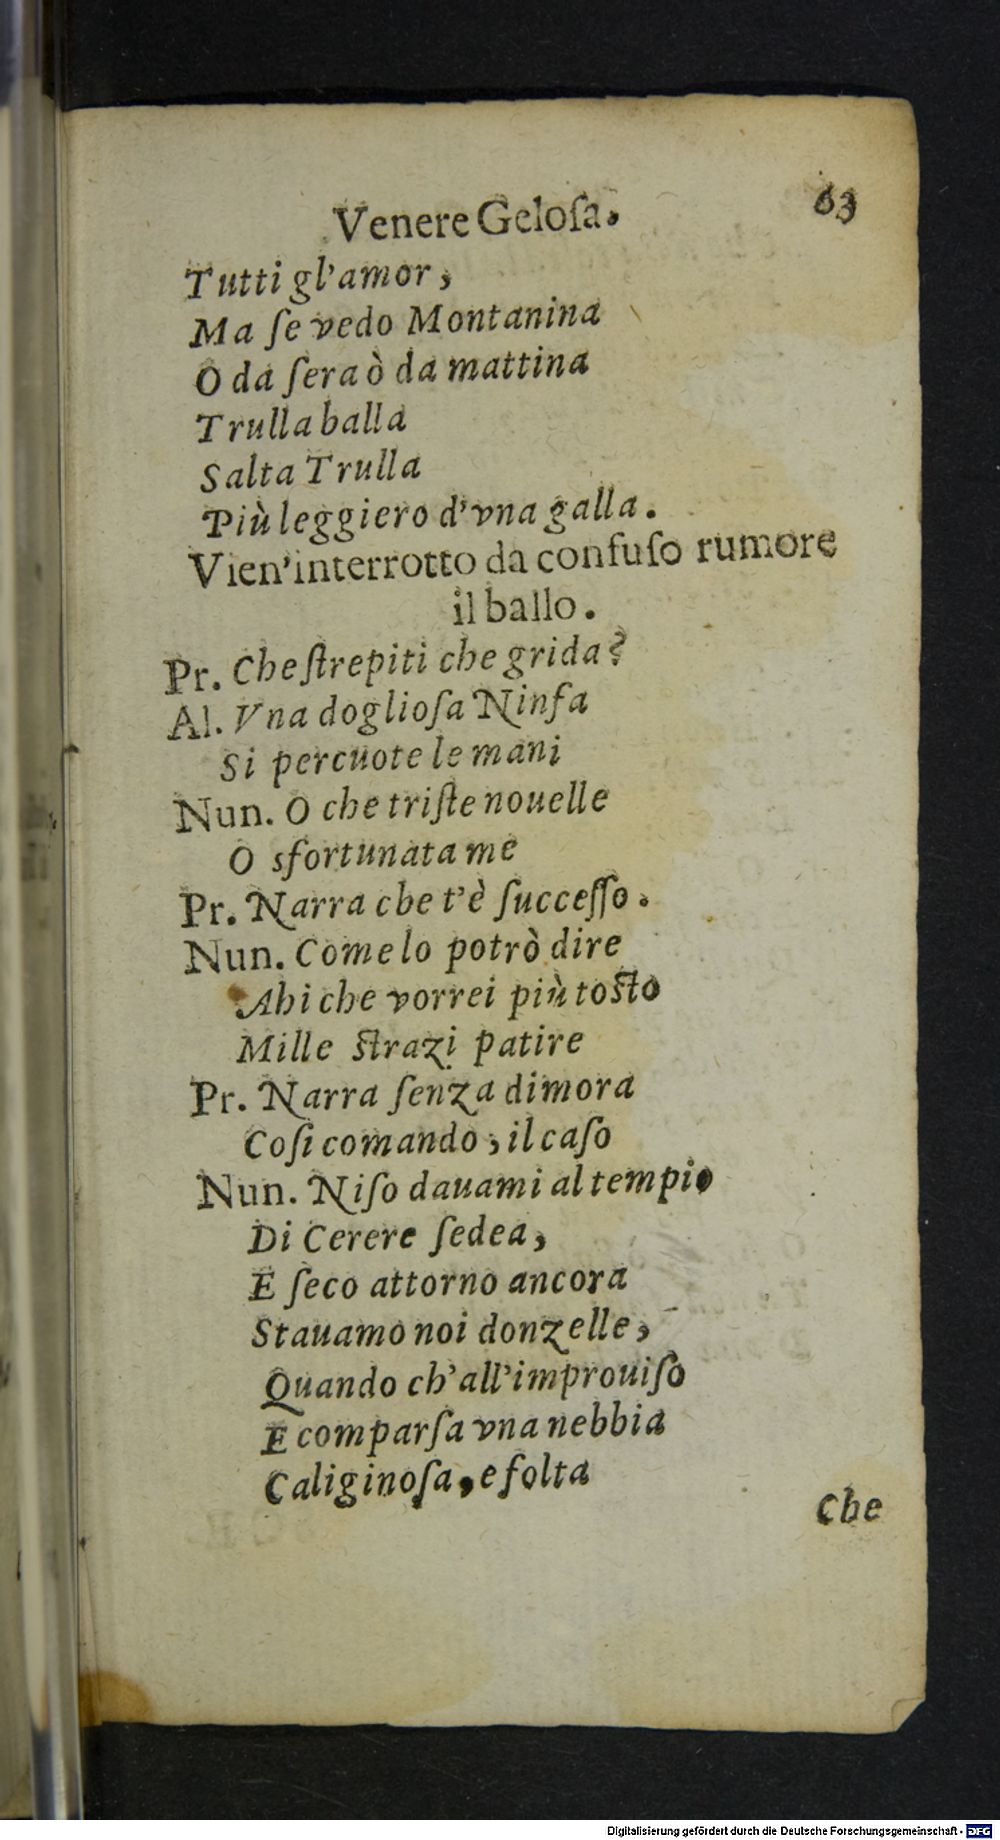 Venere Geloſa. 63
Tutti gl'amor,
Ma ſe vedo Montanina
O da ſera ò da mattina
Trulla balla
Salta Trulla
Più leggiero d'vna galla.
Vien'interrotto da confuſo rumore
il ballo.
Pr. Che ſtrepiti che grida?
Al. Vna doglioſa Ninfa
Si percuote le mani
Nun. O che triſte nouelle
O sfortunata me
Pr. Narra che t'è ſucceſſo.
Nun. Come lo potrò dire
Ahi che vorrei più toſto
Mille ſtrazi patire
Pr. Narra ſenza dimora
Coſi comando, il caſo
Nun. Niſo dauami al tempio
Di Cerere ſedea,
E ſeco attorno ancora
Stauamo noi donzelle,
Quando ch'all'improuiſo
E comparſa vna nebbia
Caliginoſa, e folta
Che
Digitalisierung gefördert durch die Deutsche Forschungsgemeinschaft - DFG